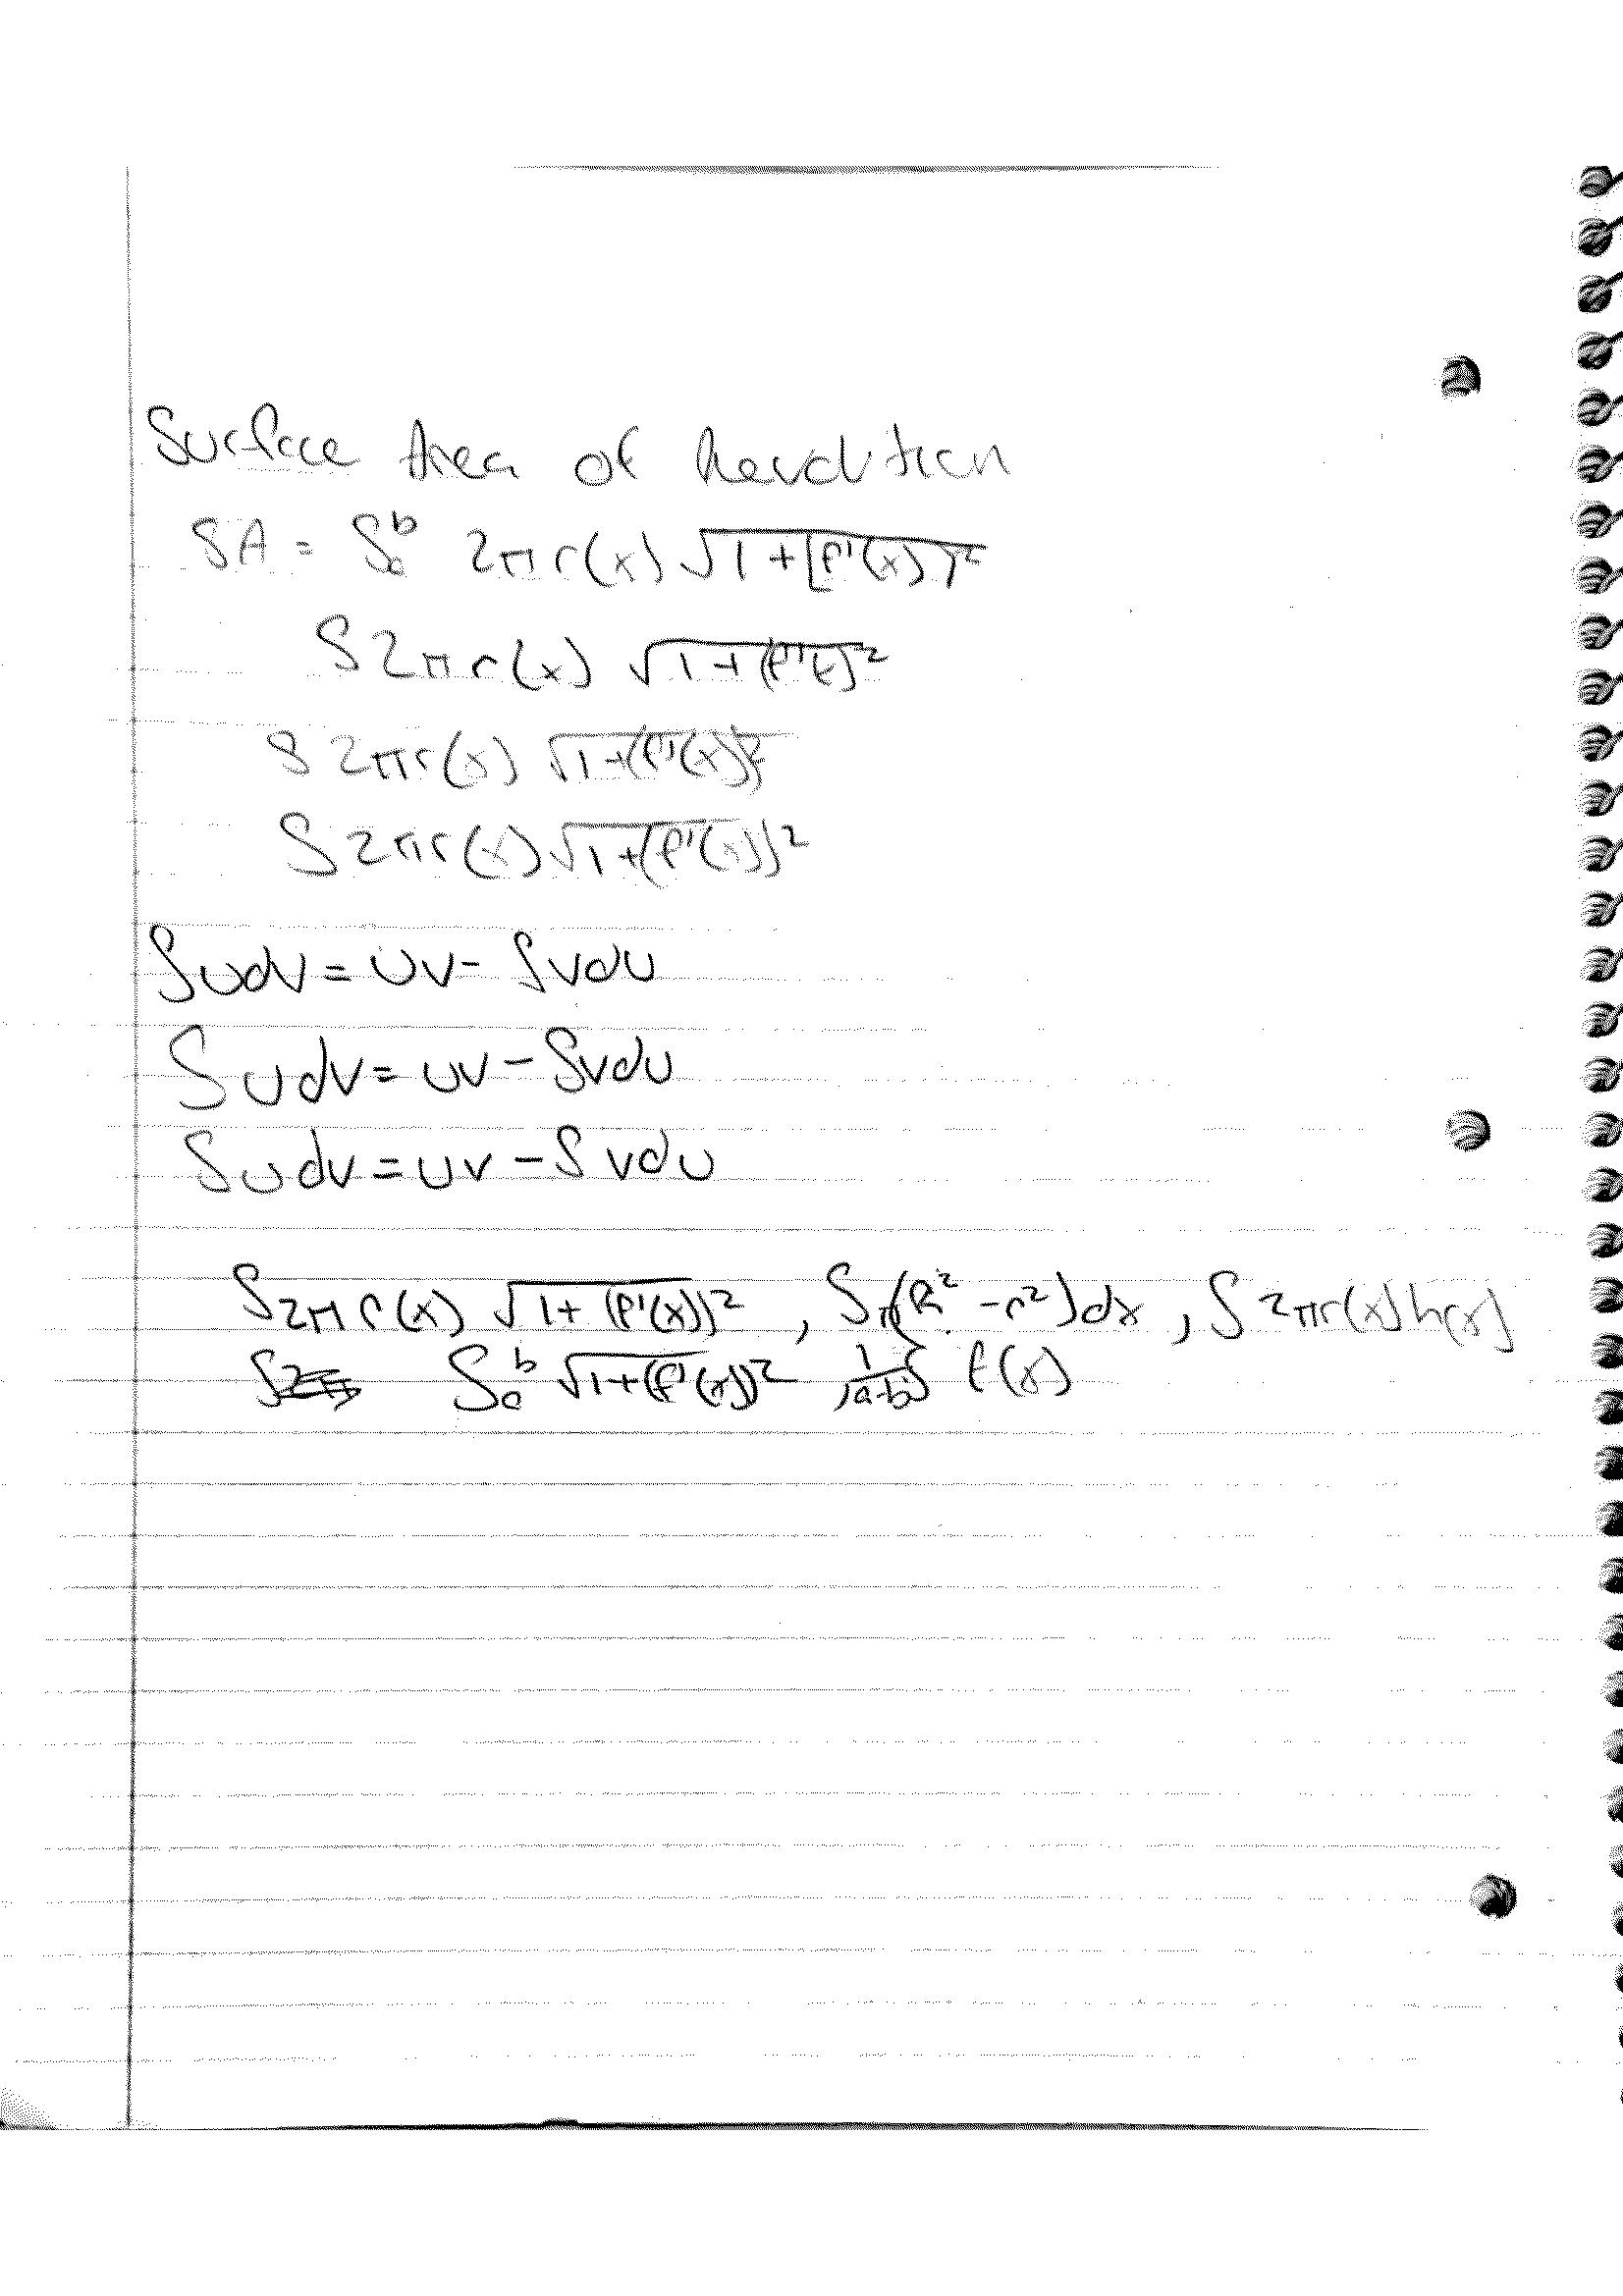 Surface Area of Revolution
SA = ∫ₐᵇ 2πr(x) √1+[f'(x)]²
∫2πr(x) √1+(f't)²
∫2πr(x) √1+(f'(x))²
∫2πr(x) √1+(f'(x))²
∫udv = uv - ∫vdu
∫udv = uv - ∫vdu
∫udv = uv - ∫vdu
∫2πr(x) √1+(f'(x))² , ∫π(R² - r²)dx , ∫2πr(x)h(x)
∫ₐᵇ √1+(f'(x))² , 1/(a-b) ∫ f(x)